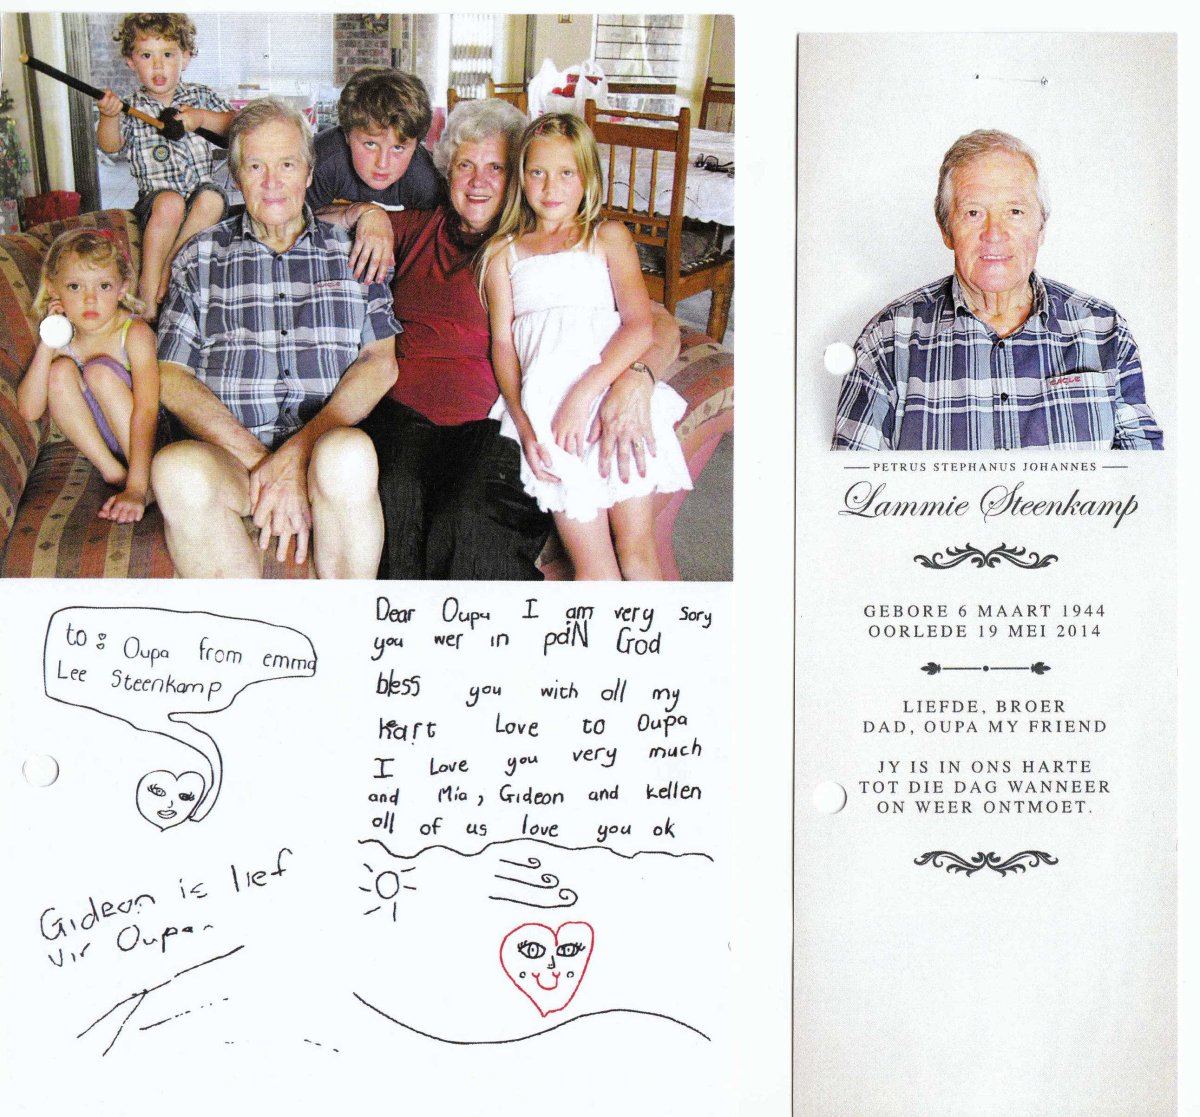 to: Oupa from emma
Lee Steenkamp
Dear Oupu I am very sory
you wer in pdiN God
bless you with oll my
heart Love to Oupa
I Love you very much
and Mia, Gideon and kellen
oll of us love you ok
Gideon is lief
vir Oupa.
PETRUS STEPHANUS JOHANNES
Lammie Steenkamp
GEBORE 6 MAART 1944
OORLEDE 19 MEI 2014
LIEFDE, BROER
DAD, OUPA MY FRIEND
JY IS IN ONS HARTE
TOT DIE DAG WANNEER
ON WEER ONTMOET.